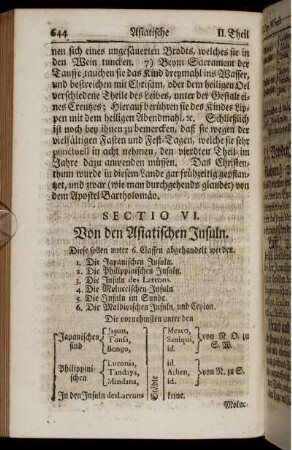 644 Asiatische II. Theil
nen sich eines ungesäuerten Brodts, welches sie in
den Wein tuncken. 7) Beym Sacrament der
Tauffe tauchen sie das Kind dreymahl ins Wasser,
und bestreichen mit Chrisam, oder dem heiligen Oel
verschiedene Theile des Leibes, unter der Gestalt ei-
nes Creutzes; Hierauf berühren sie des Kindes Lip-
pen mit dem heiligen Abendmahl, ꝛc. Schließlich
ist noch bey ihnen zu bemercken, daß sie wegen der
vielfältigen Fasten und Fest-Tagen, welche sie sehr
punctuell in acht nehmen, den vierdten Theil im
Jahre dazu anwenden müssen. Das Christen-
thum wurde in diesem Lande gar frühzeitig gepflan-
tzet, und zwar (wie man durchgehends glaubet) von
dem Apostel Bartholomäo.
SECTIO VI.
Von den Asiatischen Insuln.
Diese sollen unter 6. Classen abgehandelt werden.
1. Die Japanischen Insuln.
2. Die Philippinischen Insuln.
3. Die Insuln des Larrons.
4. Die Moluccischen Insuln.
5. Die Insuln im Sunde.
6. Die Maldivischen Insuln, und Ceylon.
Die vornehmsten unter den
Japanischen sind Japan, Meaco,
Tonsa, Sanuqui, von N. O. zu S. W.
Bongo, id.
Philippini- Luconia, id.
schen Tandaya, Achen, von N. zu S.
Mindana, id.
In den Insuln des Larrons Städte keine.
Moluc-